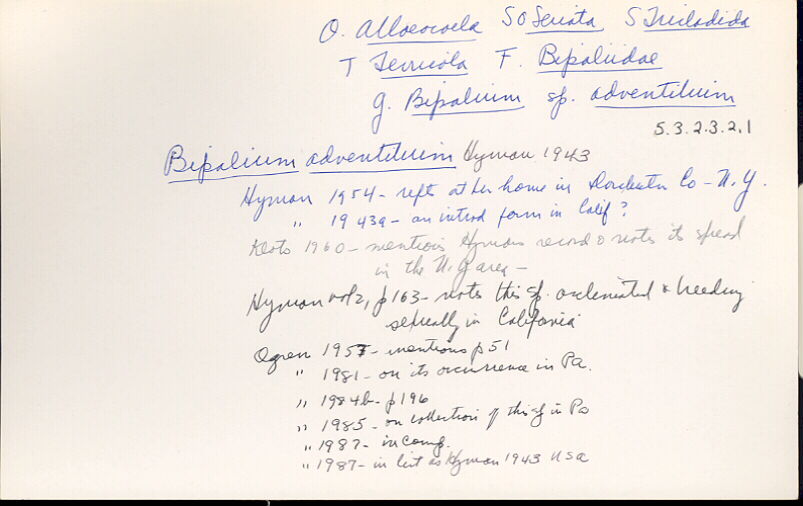 O. Alloeocoela SO Seriata S Tricladida
T Terricola F. Bipaliidae
g. Bipalium sp. adventitium
5.3.2.3.2.1
Bipalium adventitium Hyman 1943
Hyman 1954 - repts at her home in Co - N.Y.
" 1943a - an introd form in Calif?
Klots 1960 - mentions Hymans record & notes its spread
in the N.Y area -
Hyman vol 2, p 163 - notes this sp. acclimated & breeding
sexually in California
Ogren 1957 - mentions p 51
" 1981 - on its occurrence in Pa.
" 1984b - p 196
" 1985 - on collection of this sp in Pa
" 1987 - in comp.
" 1987 - in list as Hyman 1943 USA